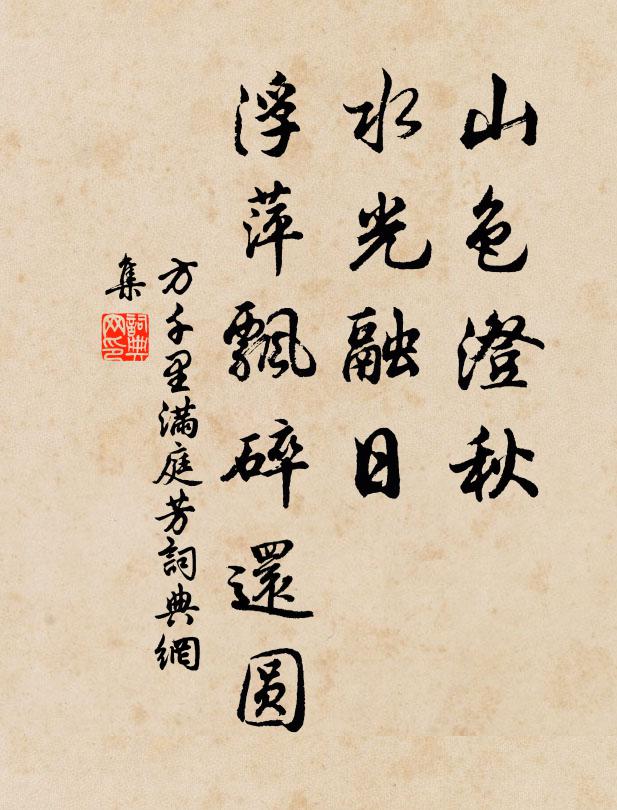 山色澄秋
水光融日
浮萍飄碎還圓
方千里滿庭芳詞典網
集
詞典
网印